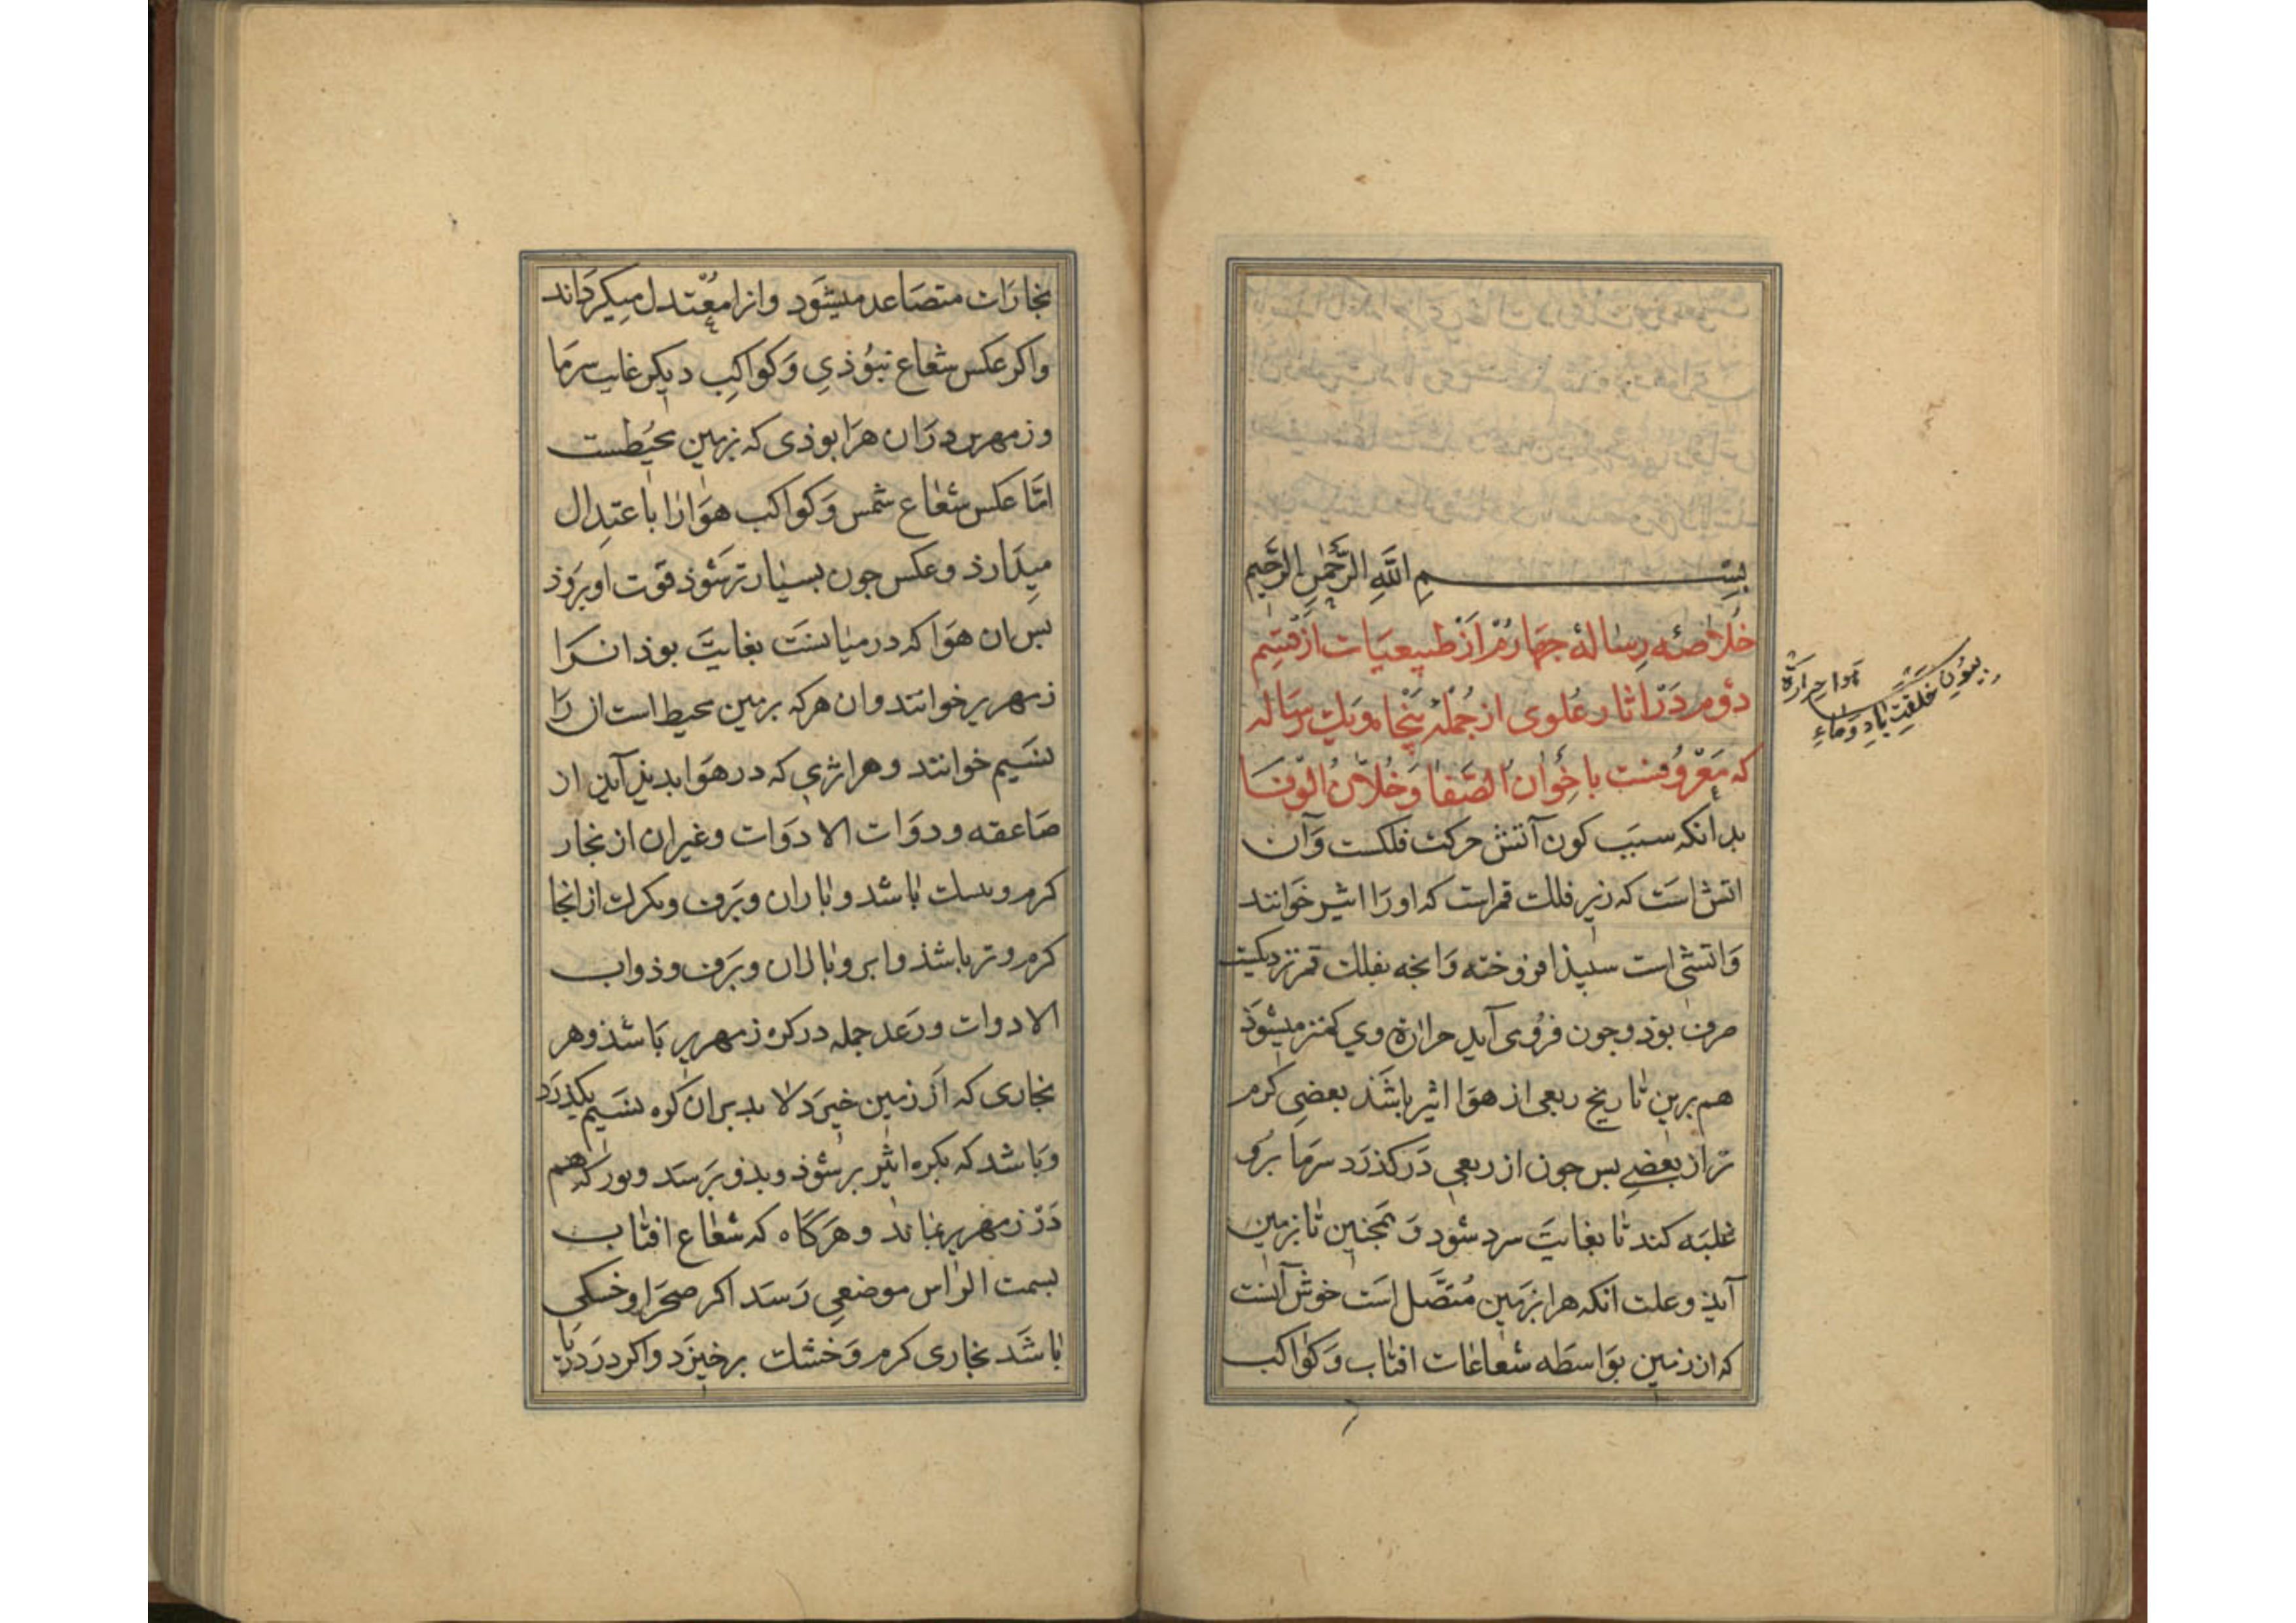 بسم الله الرحمن الرحيم
خلاصه رسالهٔ جهارم از طبیعیات از قسم
دوم در آثار علوی از جمله پنجاه و یک رساله
که معروفست باخوان الصفا و خلان الوفا
بدانکه سبب کون آتش حرکت فلکست و آن
اتش است که زیر فلک قمر است که اورا اثیر خوانند
و اتشی است سپیذ افروخته و انجه بفلک قمر نزدیکست
صرف بوذ و جون فروی آید حرارة وی کمتر میشوذ
هم برین تاریخ ربعی از هوا اثیر باشذ بعضی کرم
تر از بعضی بس جون از ربعی درکذرد سرما برو
غلبه کند تا بغایت سرد شود و همجنین تا بزمین
آیذ و علت انکه هوا بزمین متصل است خوش آنست
که از زمین بواسطه شعاعات افتاب و کواکب
هوا حرارة
خلقت باد و ماء
بخارات متصاعد میشود و انرا معتدل میکرداند
و اکر عکس شعاع نبوذی و کواکب دیکر غایب سرما
و زمهریر دران هوا بوذی که بزمین محیطست
اما عکس شعاع شمس و کواکب هوا را باعتدال
میدارذ و عکس جون بسیارتر شوذ قوت او بروذ
بس ان هوا که در میانست بغایت بوذ انرا
زمهریر خوانند و ان هوا که بزمین محیط است ان را
نسیم خوانند و هر اثری که در هوا بدیذ آیذ از
صاعقه و دوات الا دوات و غیر ان از بخار
کرم و باشد و باران و برف و تکرک از انجا
کرم و تر باشذ و ابر و باران و برف و ذواب
الا دوات و رعد جمله در کره زمهریر باشذ و هر
بخاری که از زمین خیزد لا بد بران کره نسیم بکذرد
و باشد که بکره اثیر بر شوذ و بذو برسد و بوذ که هم
در زمهریر بماند و هرکاه که شعاع افتاب
بسمت الراس موضعی رسد اکر صحرا و خشکی
باشد بخاری کرم و خشک برخیزد و اکر در دریا